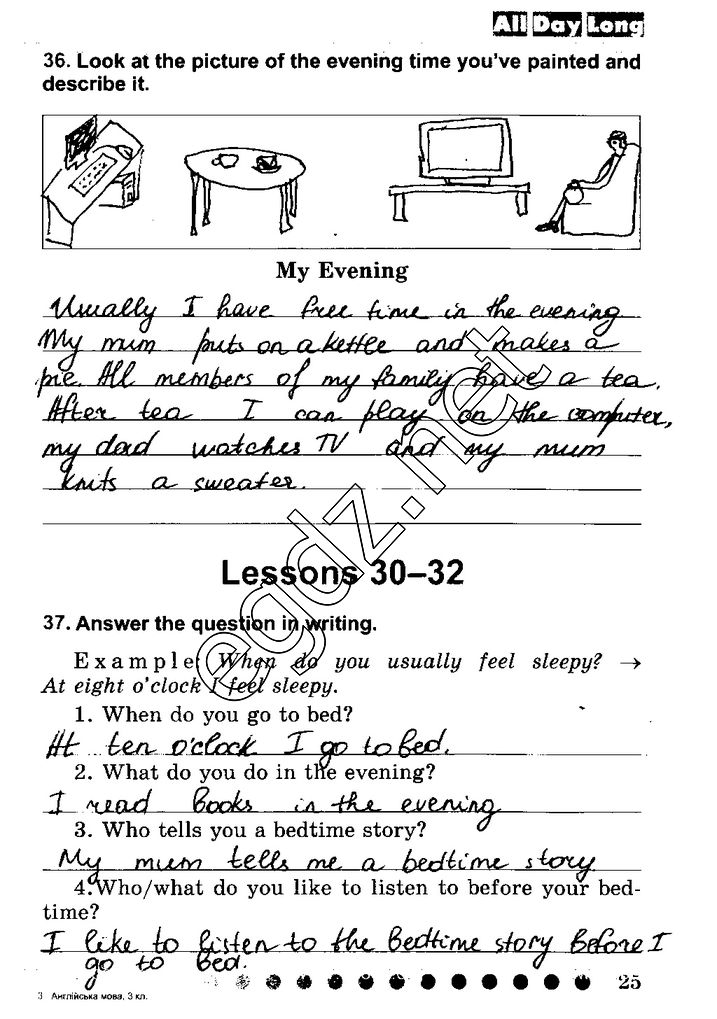 All Day Long
36. Look at the picture of the evening time you've painted and
describe it.
My Evening
Usually I have free time in the evening
My mum puts on a kettle and makes a
pie. All members of my family have a tea.
After tea I can play on the computer,
my dad watches TV and my mum
knits a sweater.
egdz.net
Lessons 30–32
37. Answer the question in writing.
Example: When do you usually feel sleepy? →
At eight o'clock I feel sleepy.
1. When do you go to bed?
At ten o'clock I go to bed.
2. What do you do in the evening?
I read books in the evening
3. Who tells you a bedtime story?
My mum tells me a bedtime story
4. Who/what do you like to listen to before your bed-
time?
I like to listen to the bedtime story before I
go to bed.
25
3 Англійська мова, 3 кл.